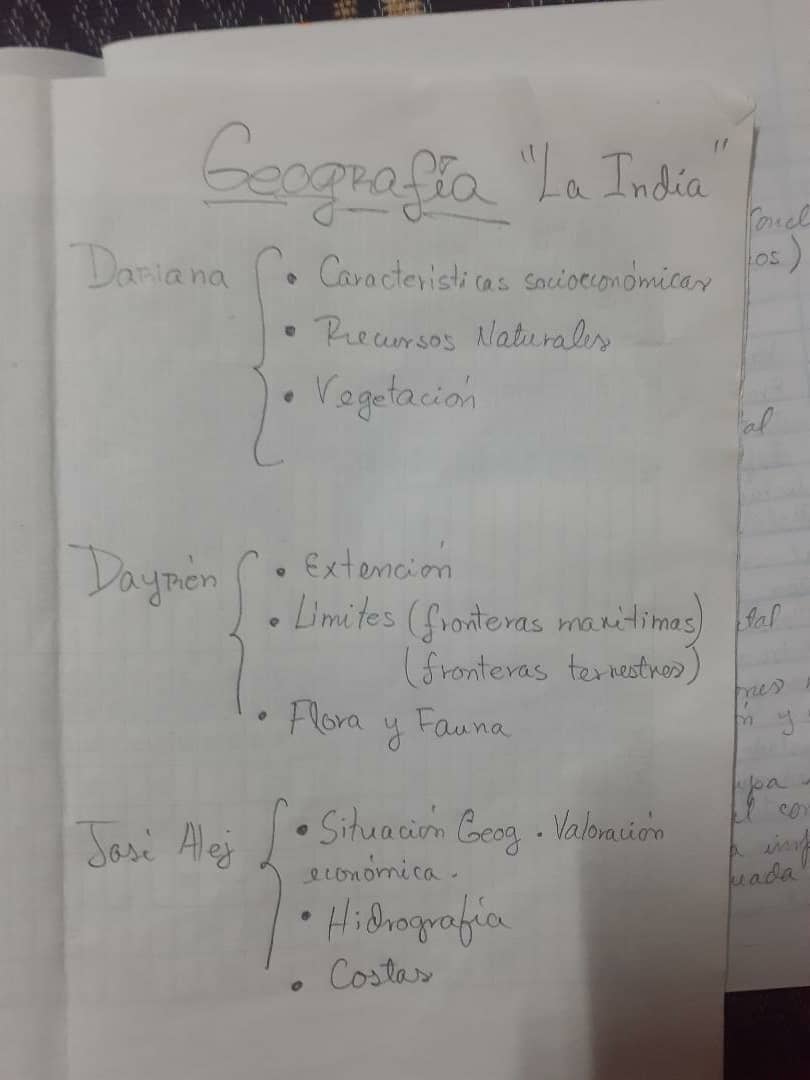 Geografía "La India"
Dariana
• Características socioeconómicas
• Recursos Naturales
• Vegetación
Dayrién
• Extención
• Límites (fronteras marítimas)
(fronteras terrestres)
• Flora y Fauna
José Alej
• Situación Geog. Valoración
económica.
• Hidrografía
• Costas
os)
al
n y